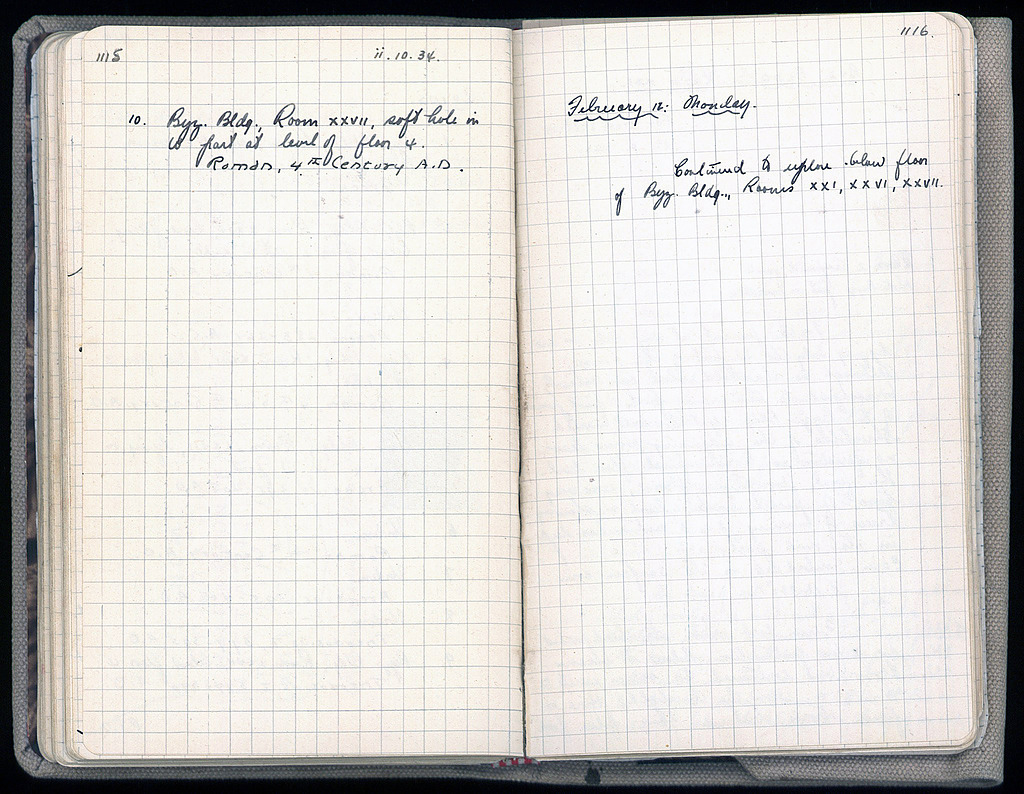 1115
ii.10.34.
10. Byz. Bldg., Room XXVII, soft hole in
W part at level of floor 4.
Roman, 4th Century A.D.
1116.
February 12: Monday.
Continued to explore below floor
of Byz. Bldg., Rooms XXI, XXVI, XXVII.